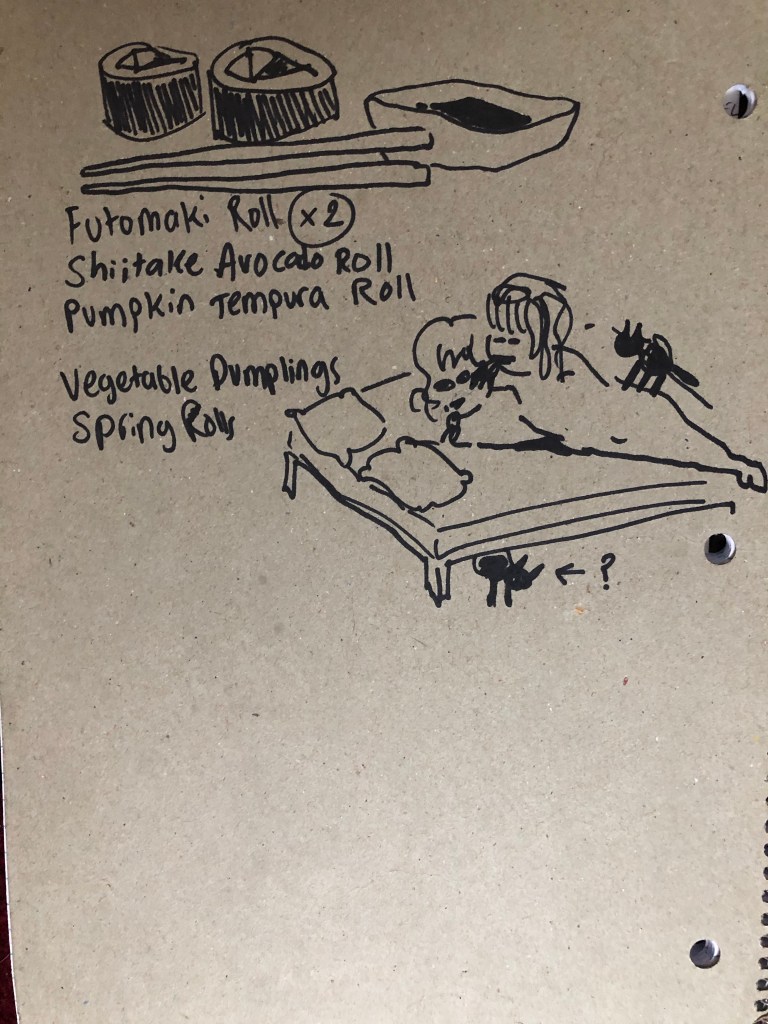 Futomaki Roll x2
Shiitake Avocado Roll
Pumpkin Tempura Roll
Vegetable Dumplings
Spring Rolls
← ?